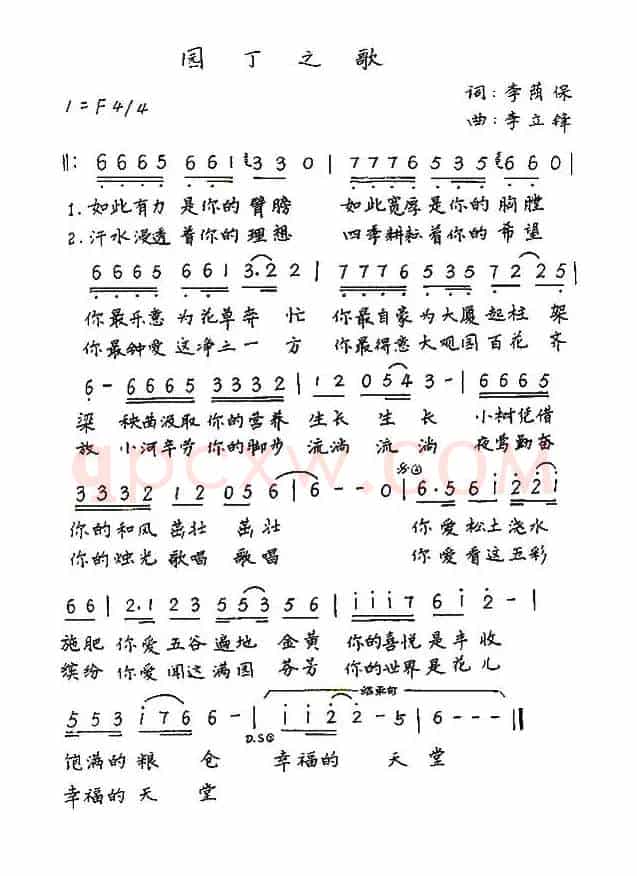 园丁之歌
词:李荫保
1=F 4/4
曲:李立锋
‖: 6665 661 33 0 | 7776 535 660 |
1.如此有力 是你的 臂膀 如此宽厚 是你的 胸膛
2.汗水浸透 着你的 理想 四季耕耘 着你的 希望
6665 661 3·2 2 | 7776 535 72 25 |
你最乐意 为花草 奔 忙 你最自豪 为大厦 起柱 架
你最钟爱 这净土 一 方 你最得意 大观园 百花 齐
6 - 6665 3332 | 12 054 3 - | 6665
梁 秧苗汲取 你的营养 生长 生 长 小树凭借
放 小河辛劳 你的脚步 流淌 流 淌 夜莺勤奋
3332 12 056 | 6 - - 0 | 6·5 6 12 221
你的和风 茁壮 茁壮 你 爱 松土 浇水
你的烛光 歌唱 歌唱 你 爱 看这 五彩
66 | 2·1 23 553 56 | 1117 61 2 - |
施肥 你爱 五谷 遍地 金黄 你的喜悦 是丰收
缤纷 你爱 闻这 满园 芬芳 你的世界 是花儿
结束句
553 176 6 - | 112 2 - 5 | 6 - - - ‖
D.S
饱满的 粮 仓 幸福的 天 堂
幸福的 天 堂
qpcxw.com